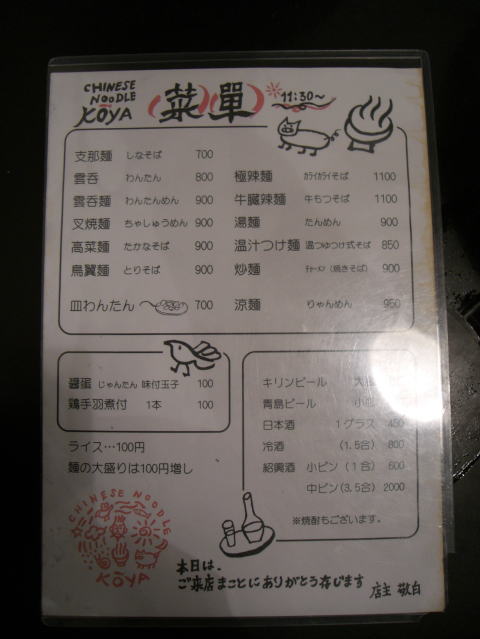 CHINESE
NOODLE
KŌYA
菜單
11:30〜
支那麺 しなそば 700
雲呑 わんたん 800
雲呑麺 わんたんめん 900
叉焼麺 ちゃしゅうめん 900
高菜麺 たかなそば 900
鳥翼麺 とりそば 900
皿わんたん 700
極辣麺 カライカライそば 1100
牛臓辣麺 牛もつそば 1100
湯麺 たんめん 900
温汁つけ麺 温つゆつけ式そば 850
炒麺 チャーメン（焼きそば） 900
涼麺 りゃんめん 950
醤蛋 じゃんたん 味付玉子 100
鶏手羽煮付 1本 100
ライス…100円
麺の大盛りは100円増し
キリンビール
青島ビール
日本酒 1グラス 450
冷酒 （1.5合） 800
紹興酒 小ビン（1合） 600
中ビン（3.5合） 2000
※焼酎もございます。
CHINESE NOODLE
KŌYA
本日は、
ご来店まことにありがとう存じます
店主 敬白